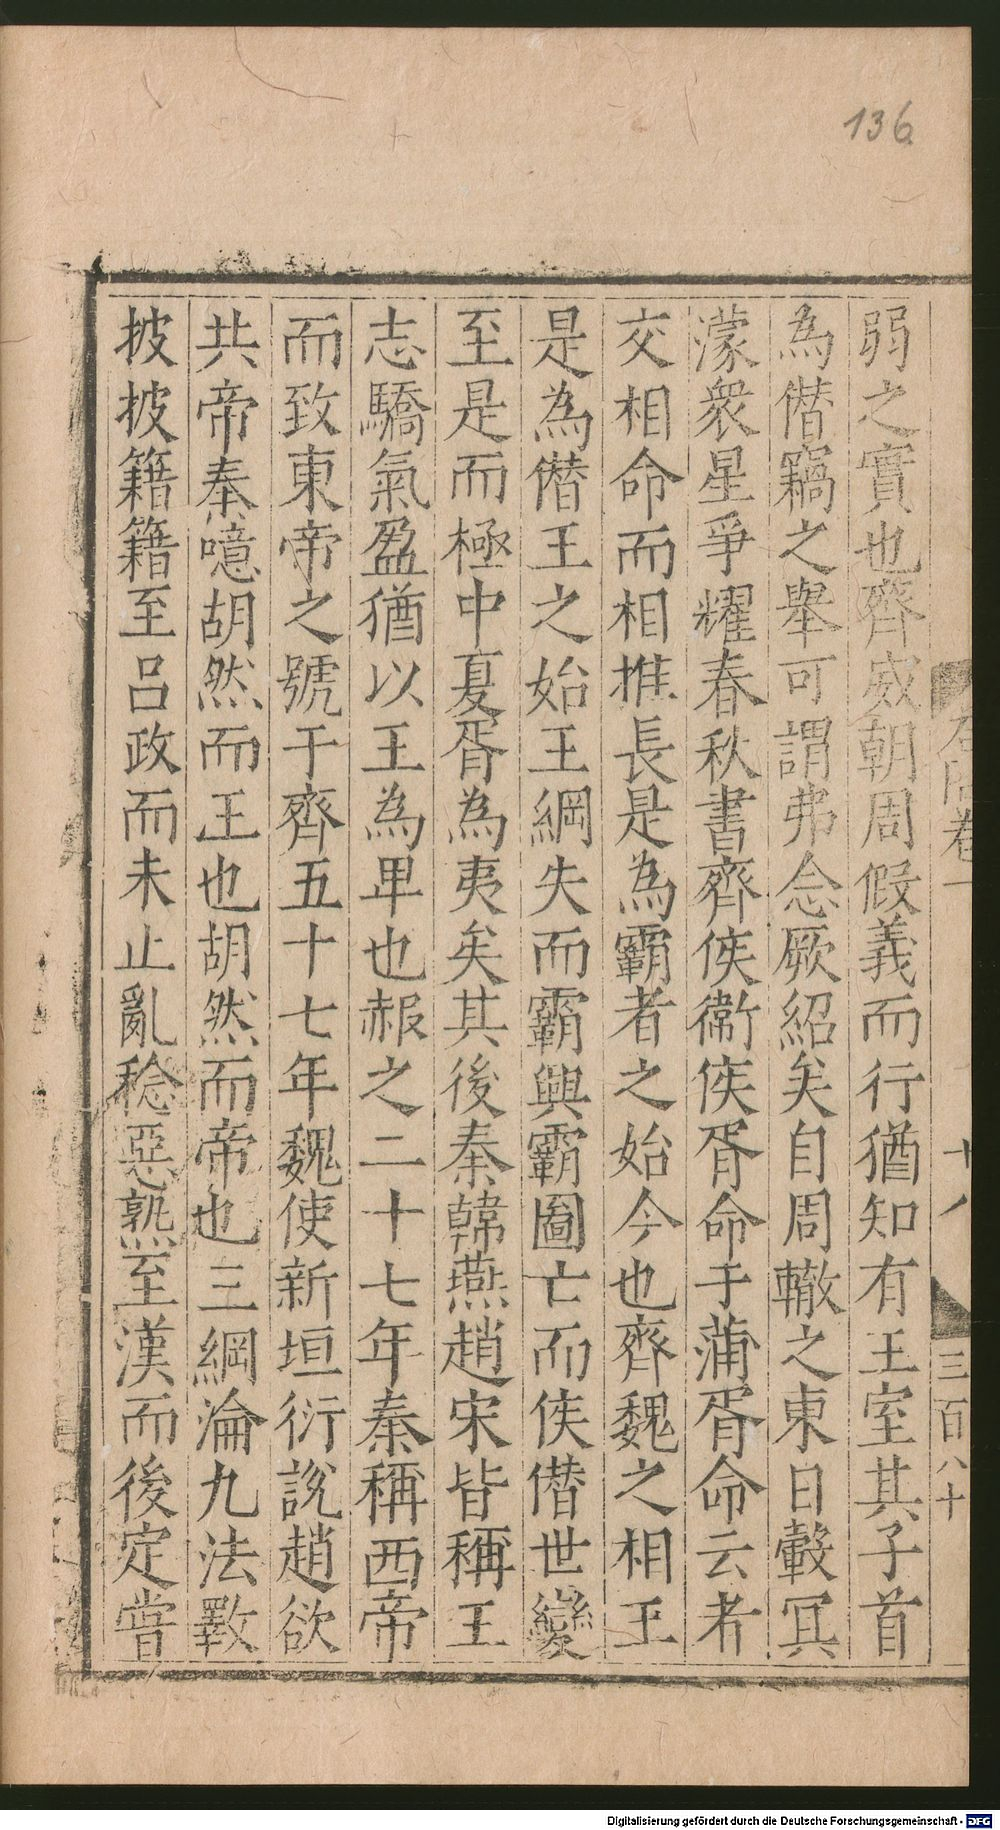 136
弱之實也齊威朝周假義而行猶知有王室其子首
為僣竊之舉可謂弗念厥紹矣自周轍之東日轂冥
濛衆星爭耀春秋書齊侯衞侯胥命于蒲胥命云者
交相命而相推長是為霸者之始今也齊魏之相王
是為僣王之始王綱失而霸興霸圖亡而侯僣世變
至是而極中夏胥為夷矣其後秦韓燕趙宋皆稱王
志驕氣盈猶以王為卑也赧之二十七年秦稱西帝
而致東帝之號于齊五十七年魏使新垣衍說趙欲
共帝秦噫胡然而王也胡然而帝也三綱淪九法斁
披披籍籍至呂政而未止亂稔惡熟至漢而後定嘗
卷一
十八
三百八十
Digitalisierung gefördert durch die Deutsche Forschungsgemeinschaft - DFG